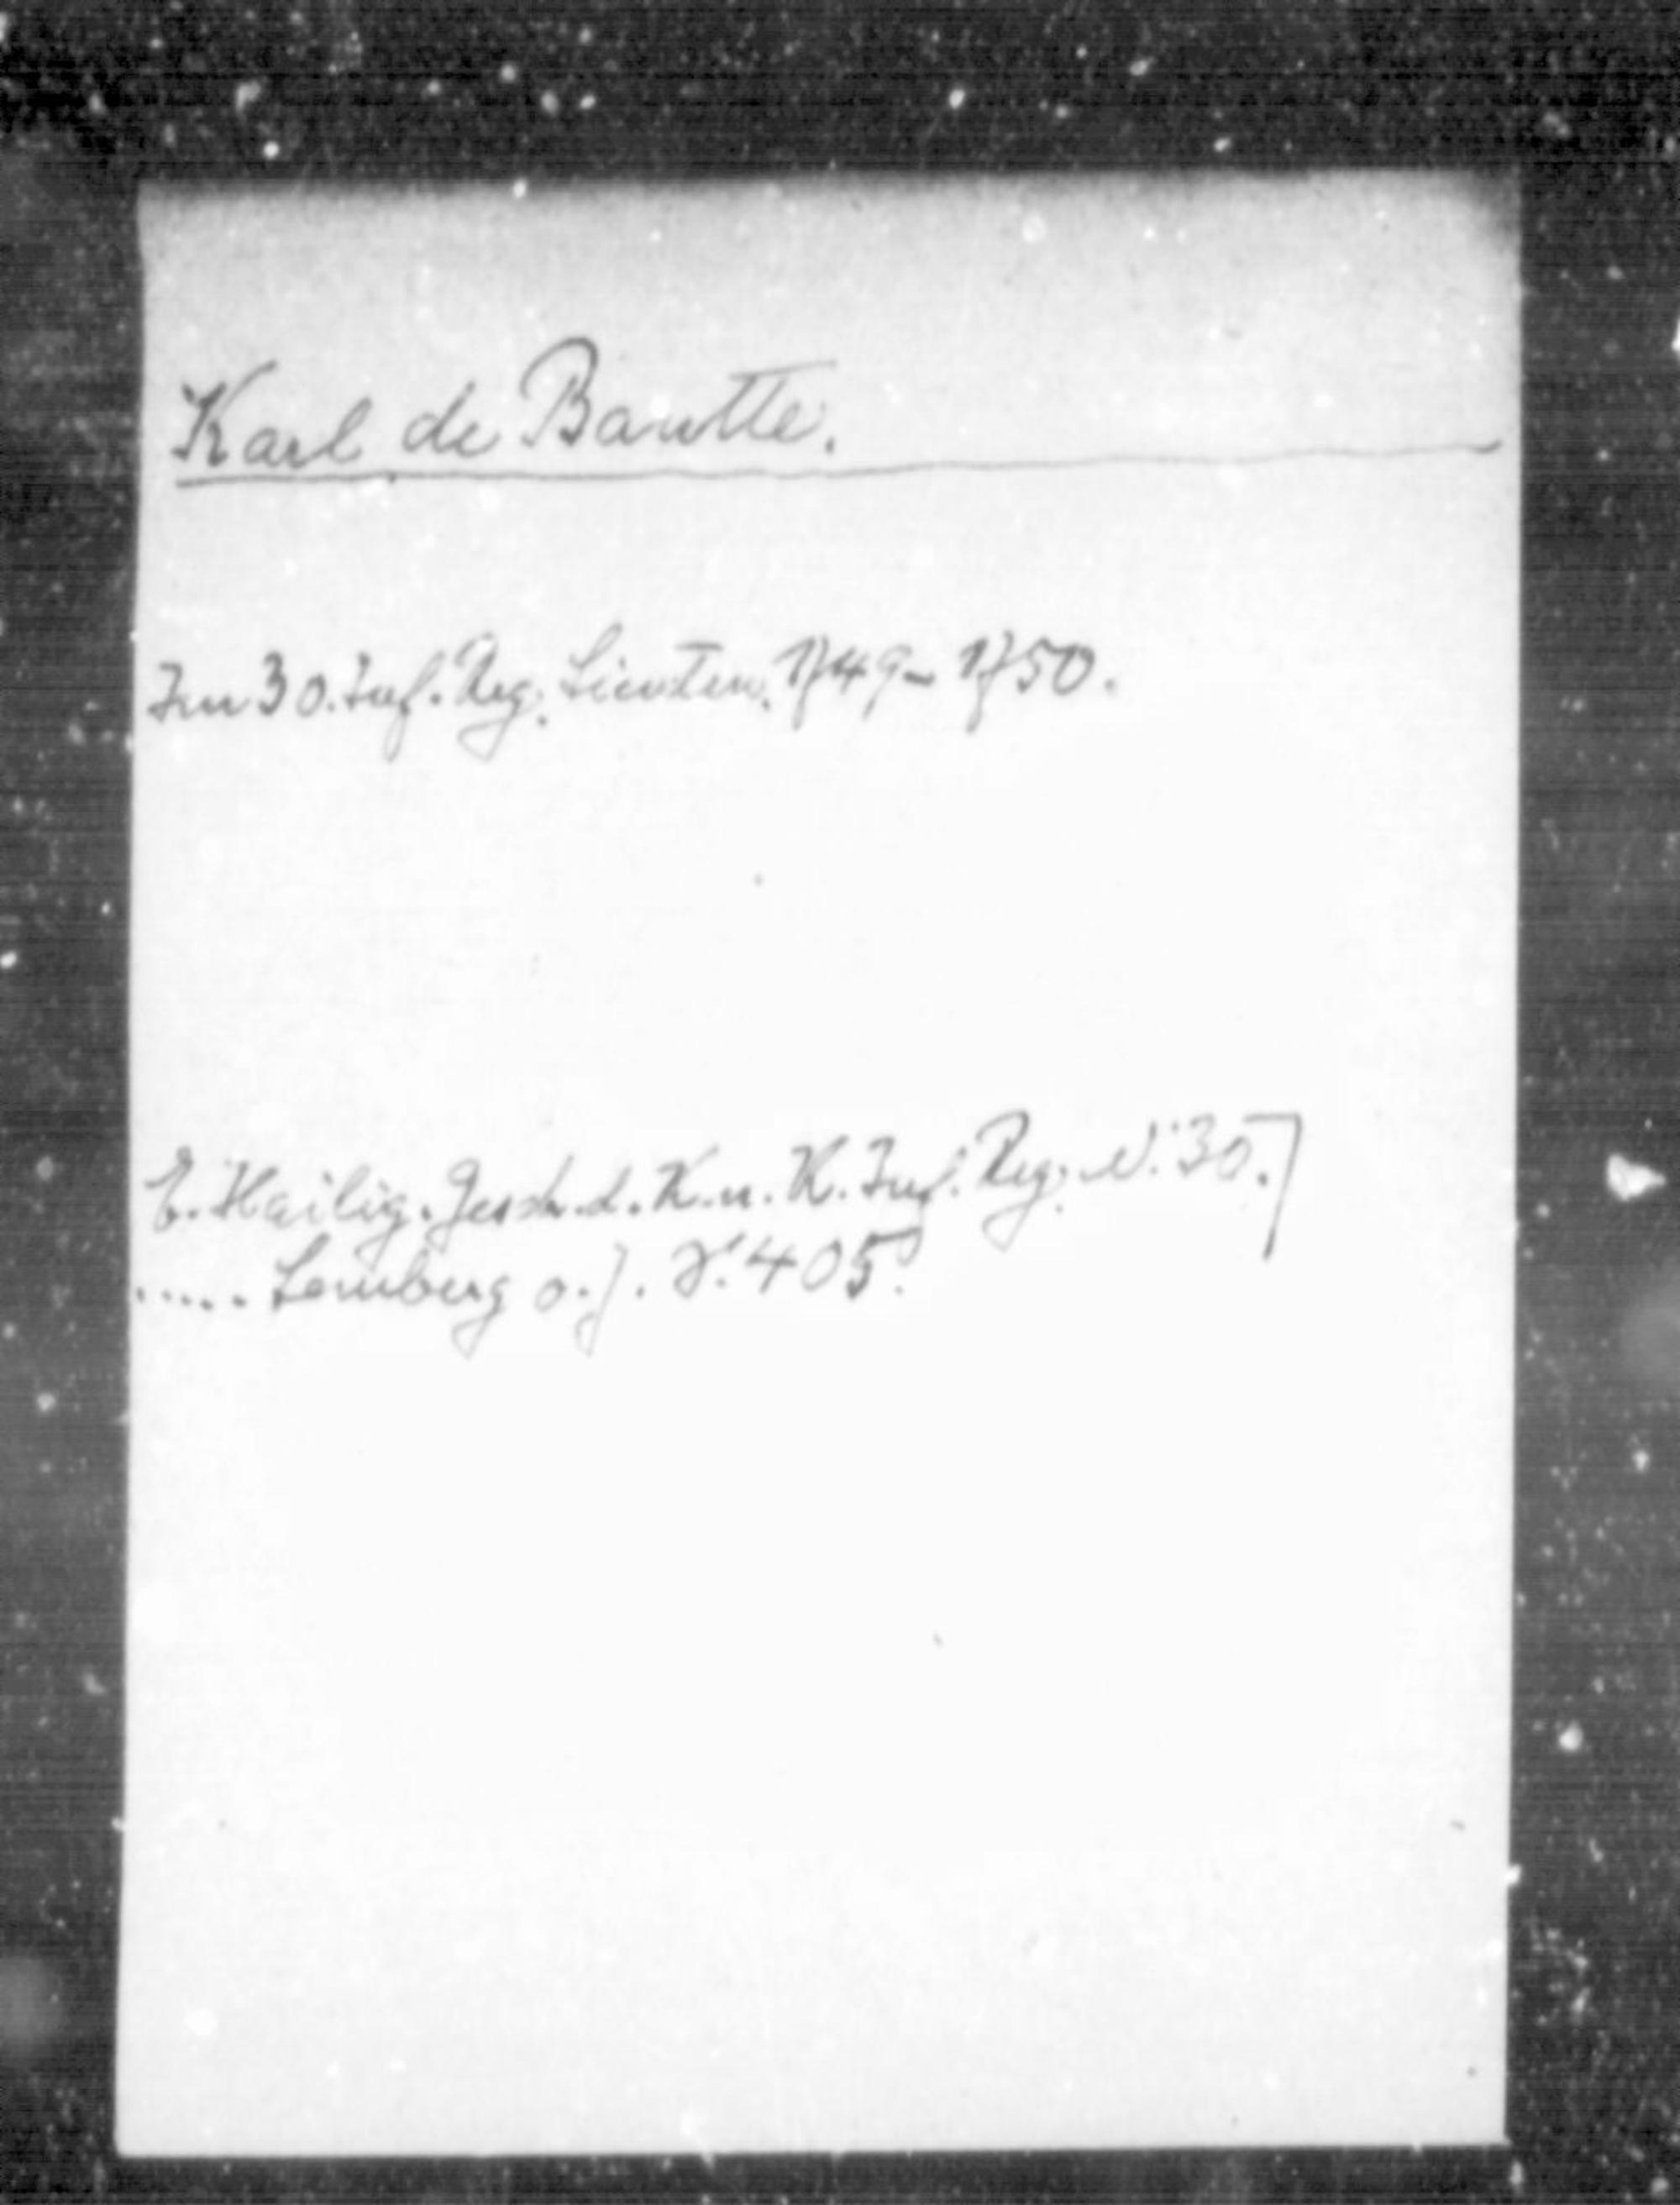 Karl de Bautte.
Im 30. Inf. Reg. Lieuten. 1749-1750.
E. Hailig. Gesch. d. K. u. K. Inf. Reg. N. 30.
..... Lemberg o. J. S. 405.